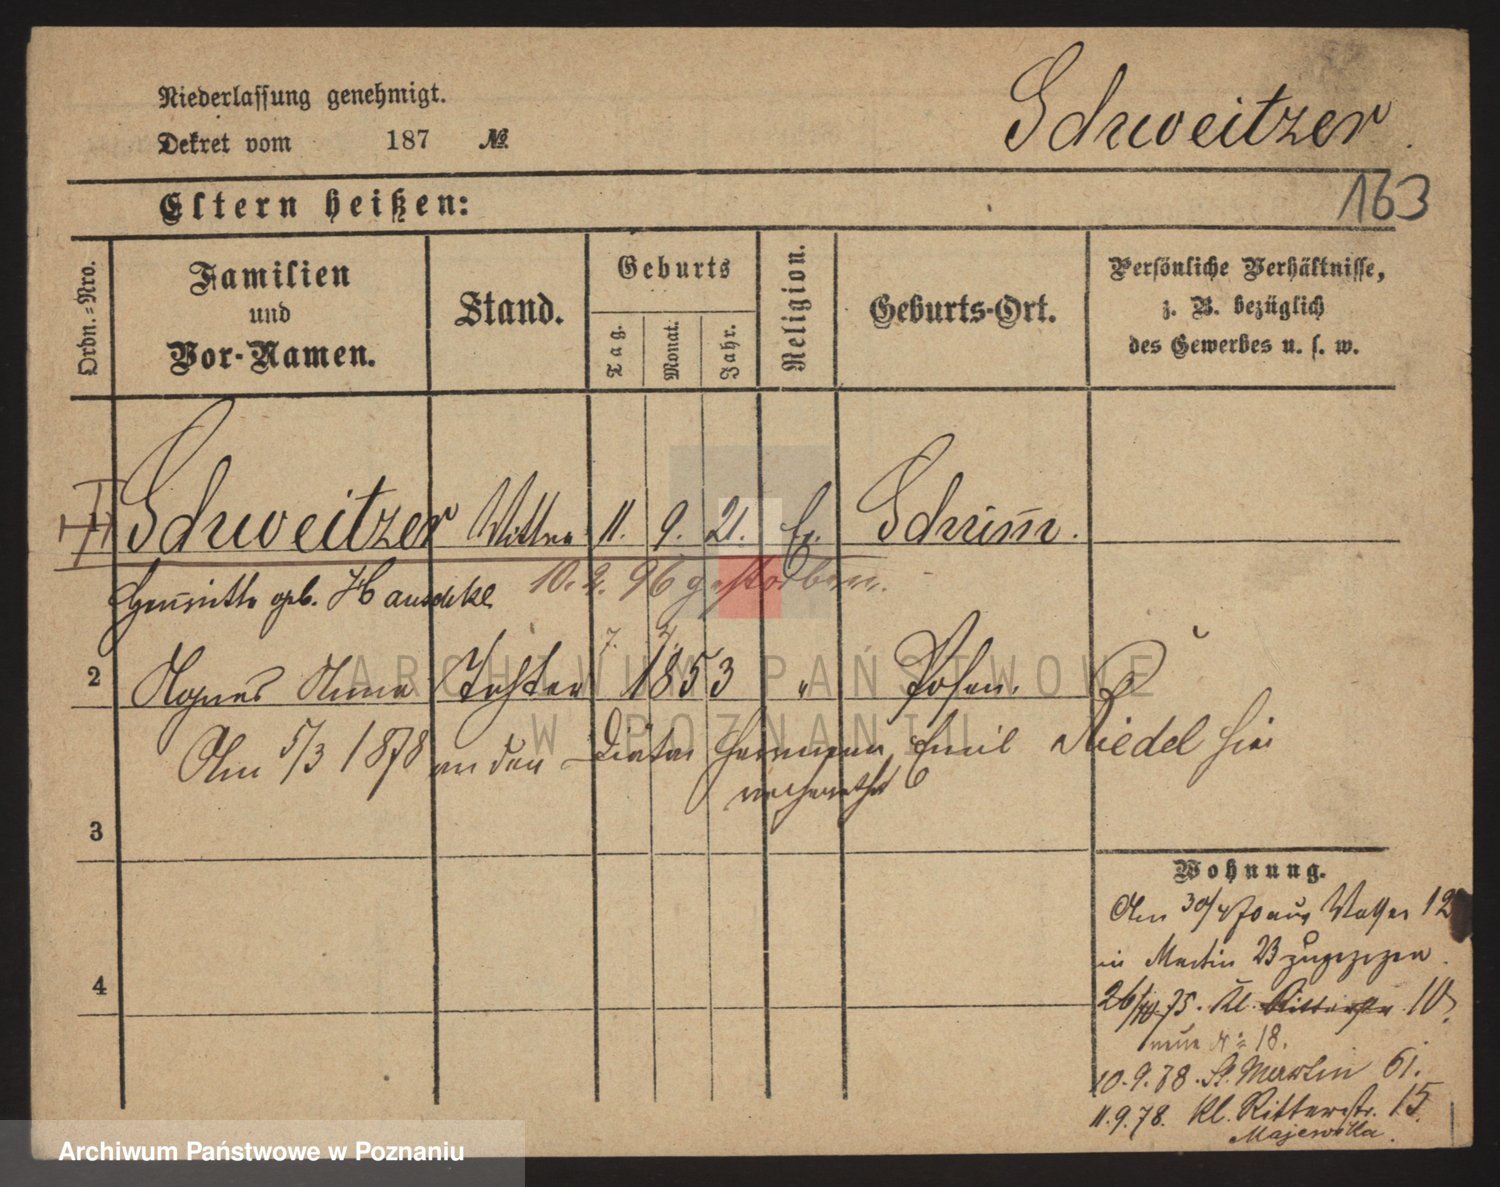 Niederlassung genehmigt.
Dekret vom 187 №
Schweitzer.
Eltern heißen:
163
Ordn.-Nro.
Familien
und
Vor-Namen.
Stand.
Geburts
Tag.
Monat.
Jahr.
Religion.
Geburts-Ort.
Persönliche Verhältnisse,
z. B. bezüglich
des Gewerbes u. s. w.
1 Schweitzer Wittwe 11. 9. 21. Ev. Schrimm.
geb. 10. 2. 96 gestorben.
7. 7.
2 Agnes Anna Tochter 1853 " Posen.
Am 5/3 1878 an den Diätar Hermann Emil Riedel hier
verheirathet
3
Wohnung.
Am 30/4 70 aus 12
in Martin 23 zugezogen.
4
26/10 75. Kl. Ritterstr 10.
neue N° 18.
10.9.78. St. Martin 61.
11.9.78. Kl. Ritterstr. 15.
ARCHIWUM PAŃSTWOWE
W POZNANIU
Archiwum Państwowe w Poznaniu